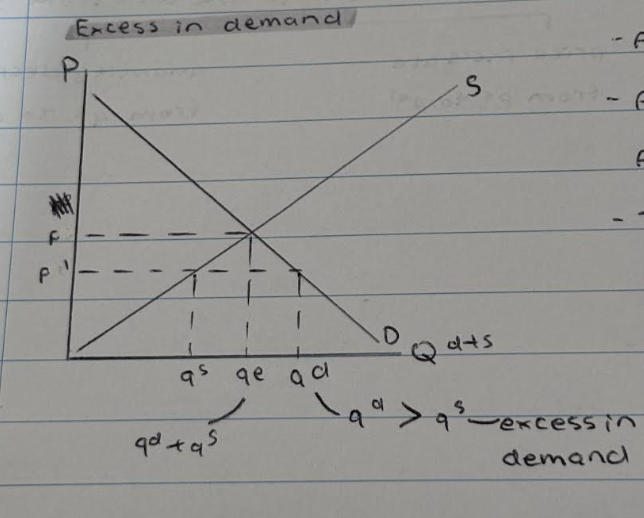 Excess in demand
P
S
P
P'
D
Q d+s
qs qe qd
qd > qs — excess in
qd + qs
demand